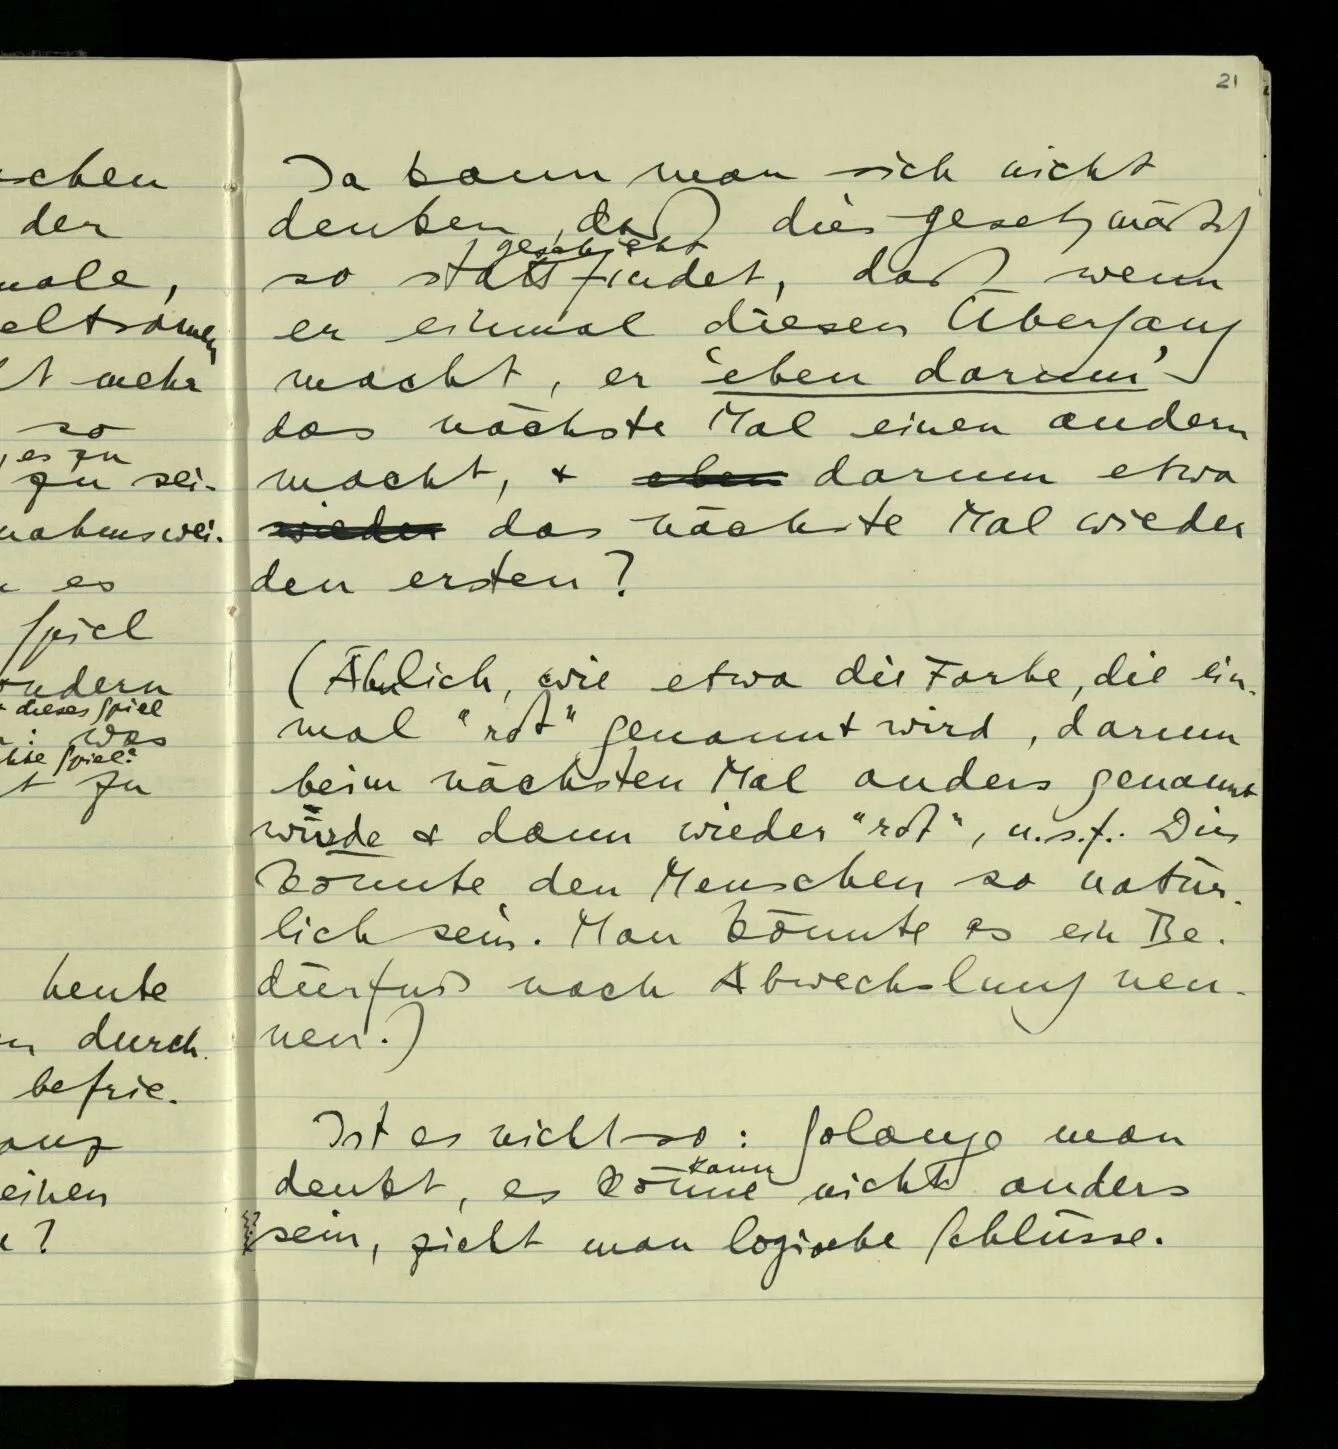 21
schen
der
male,
eltsamen
t mehr
so
es zu
zu sei-
nahmswei-
es
Spiel
ondern
dieses Spiel
: was
Spiel:
t zu
heute
durch
befrie-
anz
einen
?
Ja kann man sich nicht
denken, daß dies gesetzmäßig
geschieht
so stattfindet, daß wenn
er einmal diesen Übergang
macht, er 'eben darum'
das nächste Mal einen andern
macht, & eben darum etwa
wieder das nächste Mal wieder
den ersten?
(Ähnlich, wie etwa die Farbe, die ein-
mal "rot" genannt wird, darum
beim nächsten Mal anders genannt
würde & dann wieder "rot", u.s.f.. Dies
könnte den Menschen so natür-
lich sein. Man könnte es ein Be-
dürfnis nach Abwechslung nen-
nen.)
Ist es nicht so: Solange man
kann
denkt, es könne nicht anders
sein, zieht man logische Schlüsse.